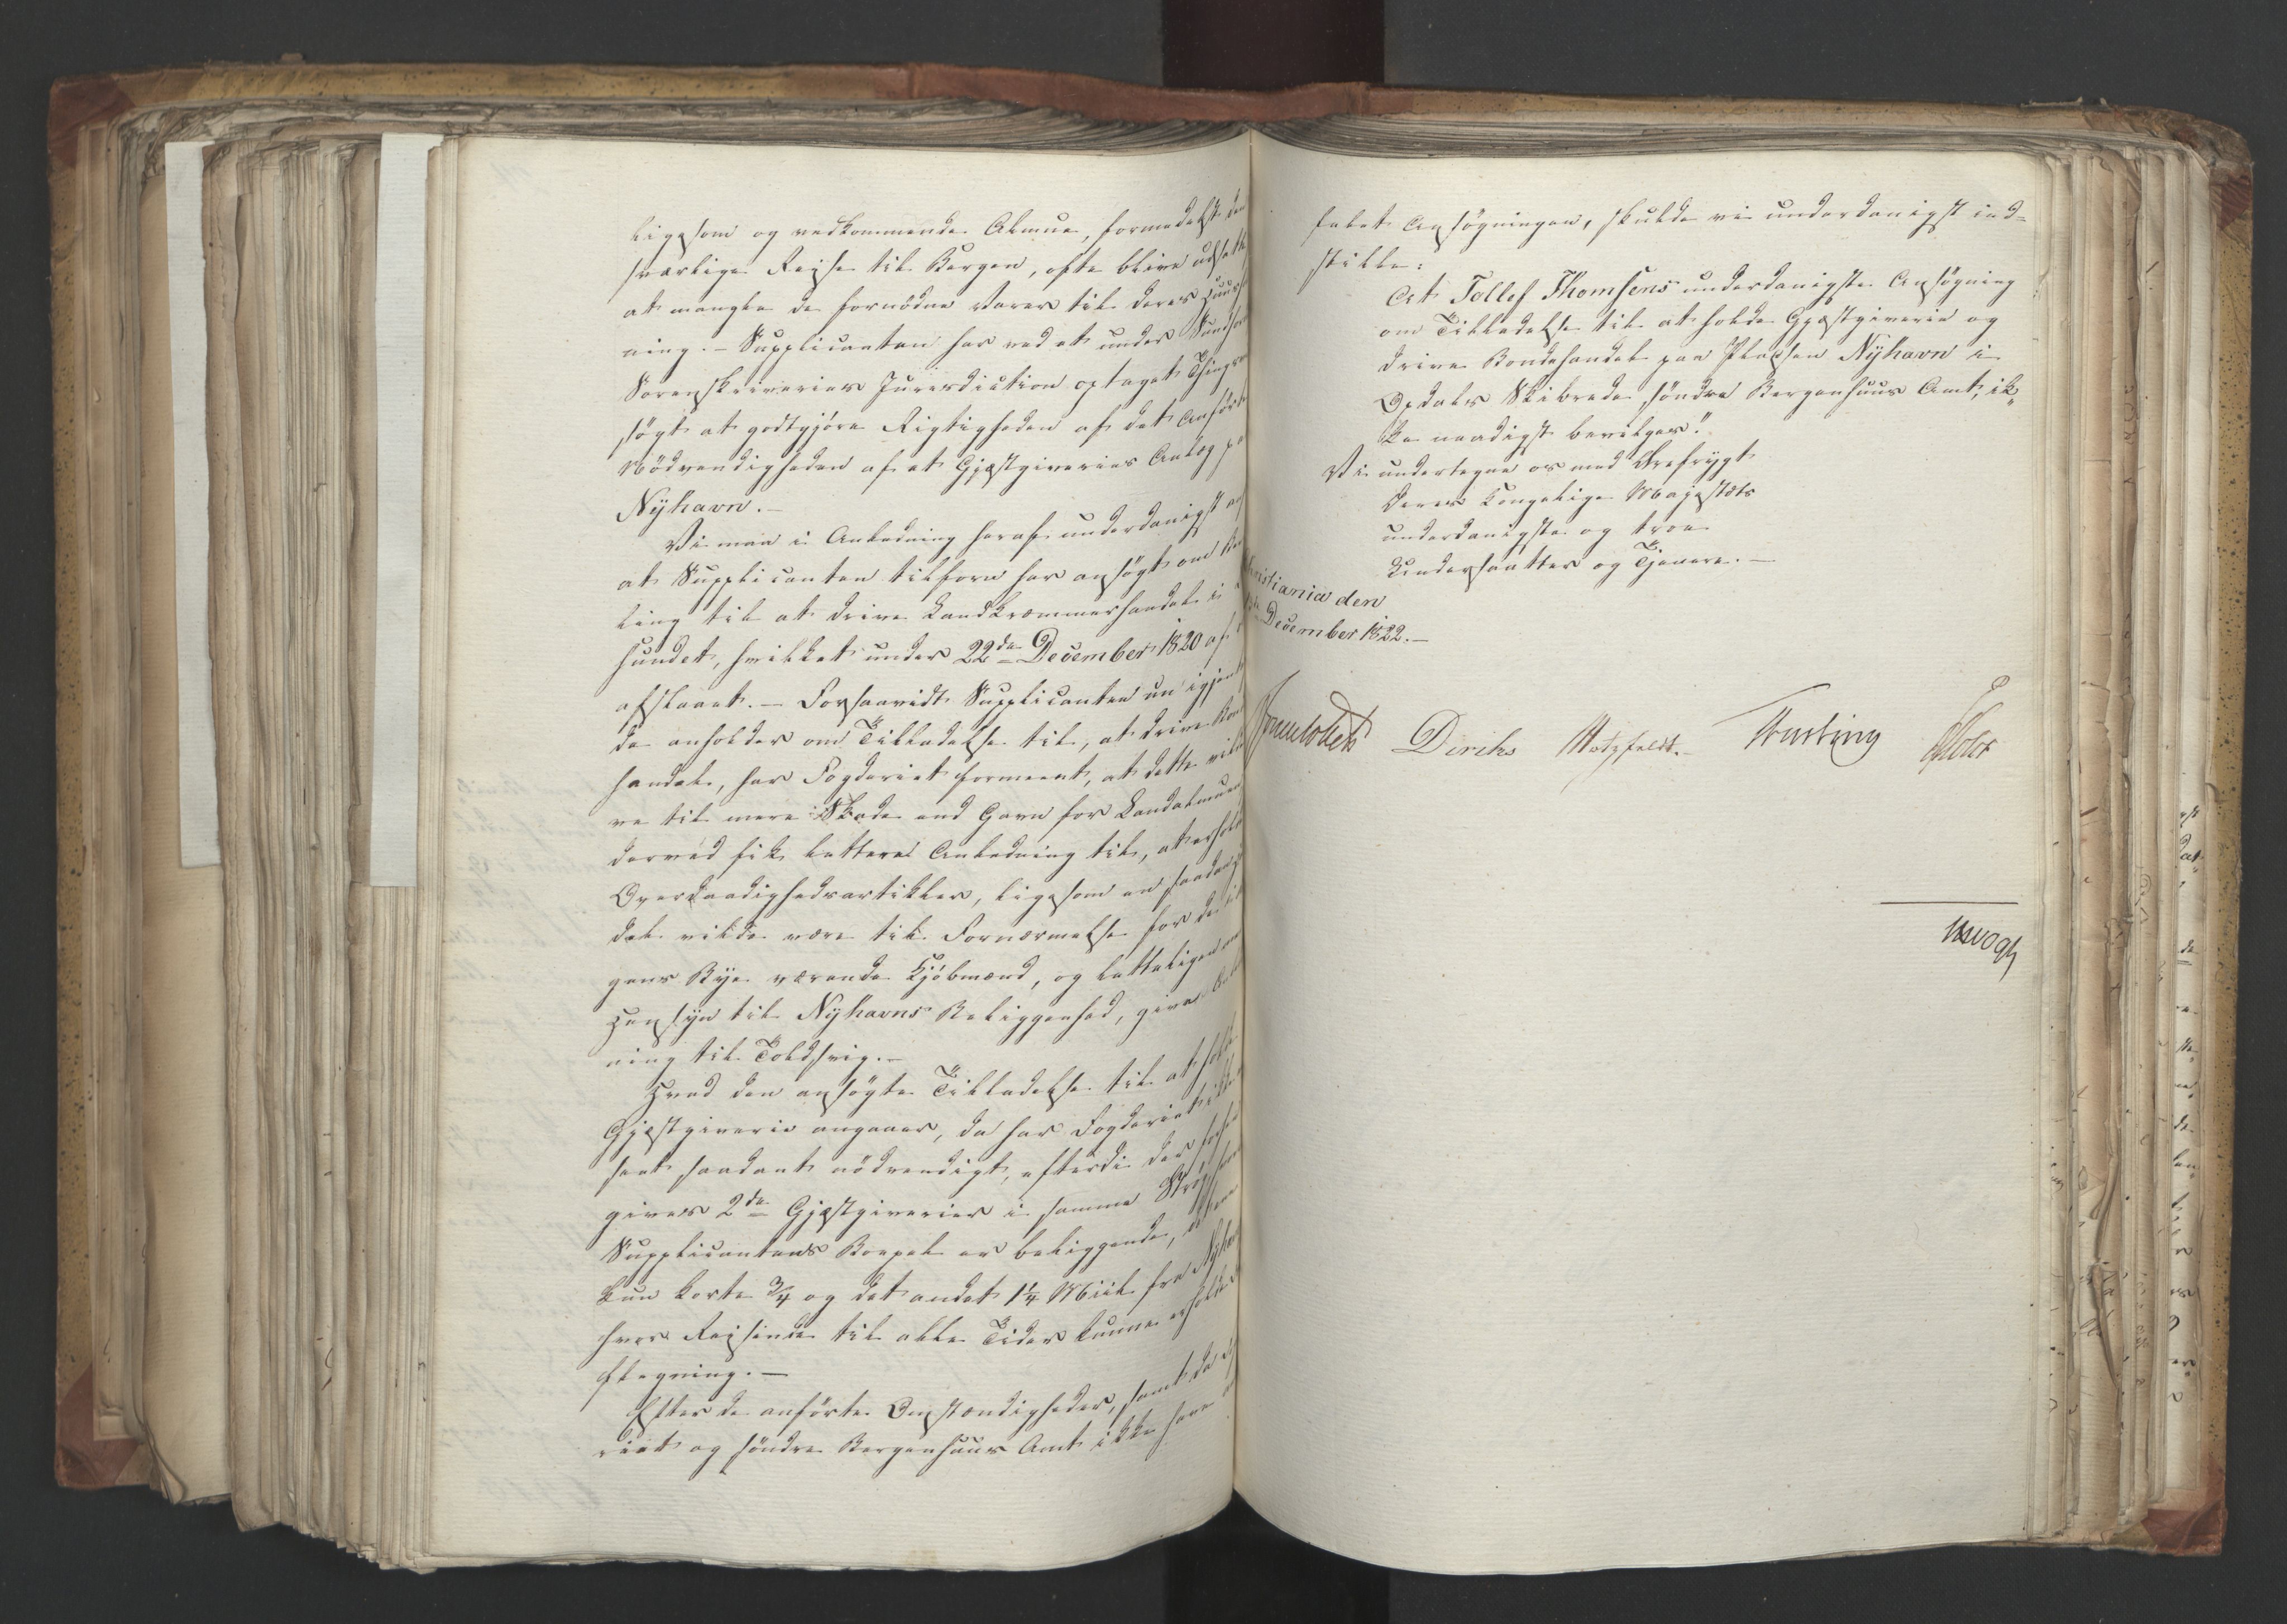 ligesom og vedkommende Almue, formedelst den
besværlige Rejse til Bergen, ofte blive udsatte
at mangle de fornødne Varer til deres Huushold
ning. – Supplicanten har ved et under Sundhord
Sorenskriveries Jurisdiction optaget Thingsv
søgt at godtgjøre Rigtigheden af det Anførte
Nødvendigheden af et Gjæstgiveries Anlæg pa
Nÿhavn. –
Vi maa i Anledning heraf underdanigst
at Supplicanten tilforn har ansøgt om Be
ling til at drive Landkræmmerhandel i
hundet, hvilket under 22de December 1820 af
afslaaet. – Forsaavidt Supplicanten nu igjen
de anholder om Tilladelse til, at drive Bon
handel, har Fogderiet formeent, at dette vil
re til mere Skade end Gavn for Landalmuen
derved fik lettere Anledning til, at erhold
Overdaadighedsartikler, ligesom en saadan
del vilde være til Fornærmelse for de i
gens Bye værende Kjøbmænd, og lettelig
Hensÿn til Nÿhavns Beliggenhed, give Anled
ning til Toldsvig. –
Hvad den ansøgte Tilladelse til at holde
Gjæstgiverie angaaer, da har Fogderiet ikke
seet saadant nødvendigt, efterdi der for
gives 2de Gjæstgiverier i samme Strøg hvor
Supplicantens Boepæl er beliggende, det ene
kun korte 3/4 og det andet 1 1/4 Miil fra Nÿhavn
hvor Rejsende til alle Tider kunne erholde
plegning. –
Efter de anførte Omstændigheder, samt da
riet og søndre Bergenhuus Amt ikke have
falet Ansøgningen, skulde vi underdanigst ind-
stille:
At Tellef Thomsens underdanigste Ansøgning
om Tilladelse til at holde Gjæstgiverie og
drive Bondehandel paa Pladsen Nÿhavn i
Opdals Skibrede søndre Bergenhuus Amt, ik-
ke naadigst bevilges."
Vi undertegne os med Ærefrygt
Deres Kongelige Majestæts
underdanigste og troe
Undersaatter og Tjenere. –
Christiania den
December 1822. –
Diriks Motzfeldt. –